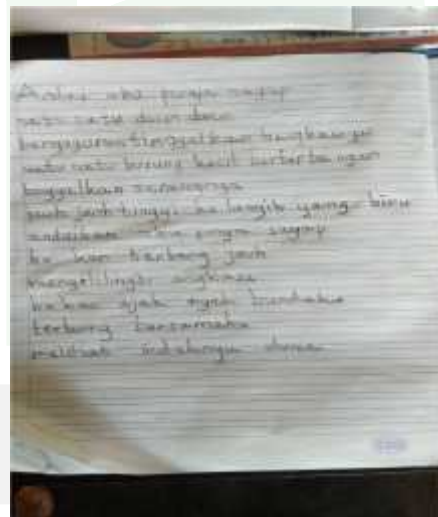 Andai aku punya sayap
satu satu daun daun
berguguran tinggalkan tangkainya
satu satu burung kecil berterbangan
tinggalkan sarangnya
jauh jauh tinggi ke langit yang biru
andaikan aku punya sayap
ku kan terbang jauh
mengelilingi angkasa
kan ajak ayah bundaku
terbang bersamaku
melihat indahnya dunia